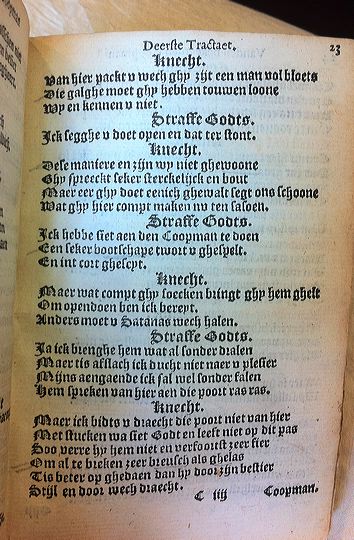 Deerste Tractaet. 23
Knecht.
Van hier packt v wech ghy zijt een man vol bloets
Die galghe moet ghy hebben touwen loone
Wy en kennen v niet.
Straffe Godts.
Ick segghe v doet open en dat ter stont.
Knecht.
Dese maniere en zijn wy niet ghewoone
Ghy spreeckt seker sterckelijck en bout
Maer eer ghy doet eenich ghewalt segt ons schoone
Wat ghy hier compt maken nv ten sasoen.
Straffe Godts.
Ick hebbe siet aen den Coopman te doen
Een seker bootschape twort v ghespelt.
En int cort ghescpt.
Knecht.
Maer wat compt ghy soecken bringt ghy hem ghelt
Om opendoen ben ick bereyt.
Anders moet v Satanas wech halen.
Straffe Godts.
Ja ick brenghe hem wat al sonder dralen
Maer tis afslach ick ducht niet naer v plesier
Mijns aengaende ick sal wel sonder falen
Hem spreken van hier aen die poort ras ras.
Knecht.
Maer ick bidts v draecht die poort niet van hier
Met stucken wa sier Godt en leeft niet op dit pas
Soo verre hy hem niet en verfoorst zeer fier
Om al te breken zeer breusch als ghelas
Tis beter op ghedaen dan hy door zijn bestier
Stijl en door wech draecht.
C iij Coopman.